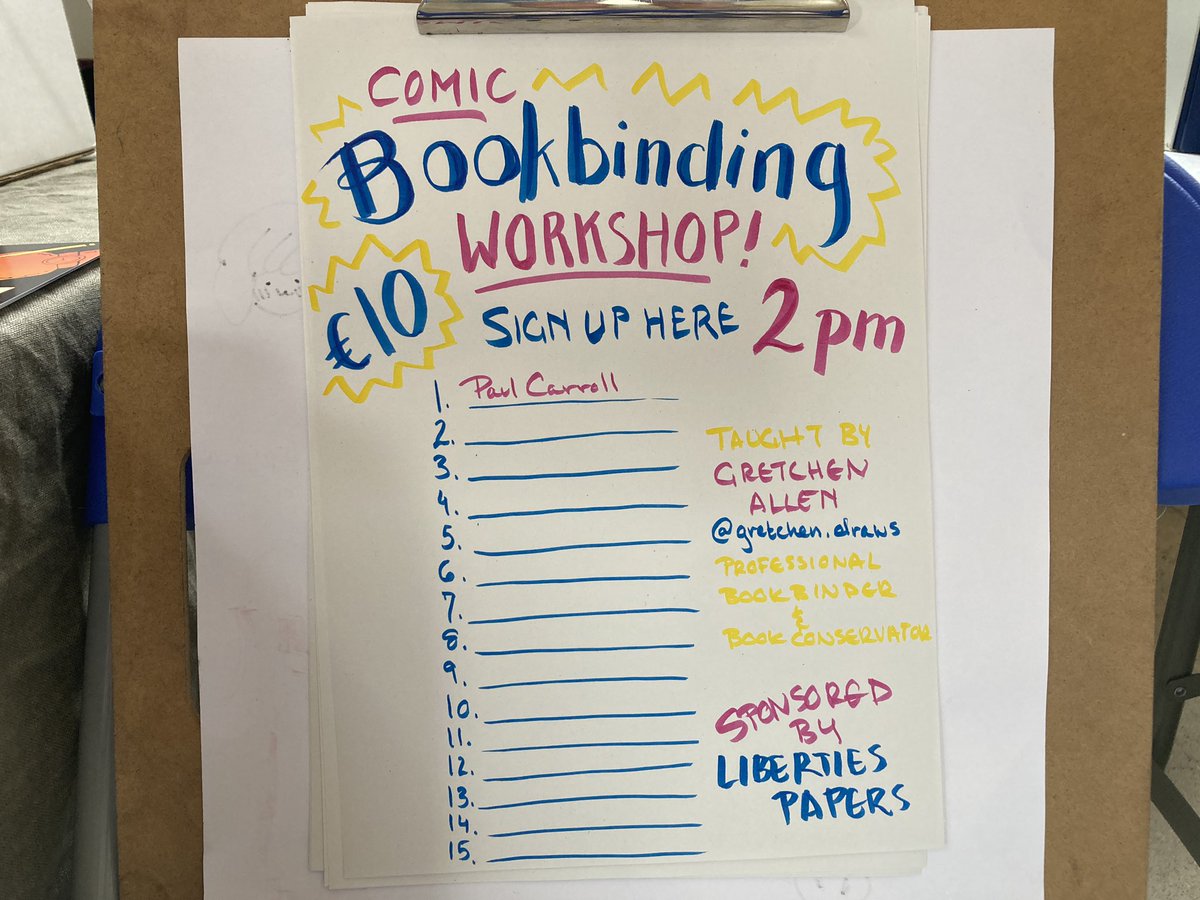 COMIC
Bookbinding
WORKSHOP!
€10
SIGN UP HERE 2pm
1. Paul Carroll
2.
3.
4.
5.
6.
7.
8.
9.
10.
11.
12.
13.
14.
15.
TAUGHT BY
GRETCHEN
ALLEN
@gretchen.draws
PROFESSIONAL
BOOKBINDER
&
BOOK CONSERVATOR
SPONSORED
BY
LIBERTIES
PAPERS